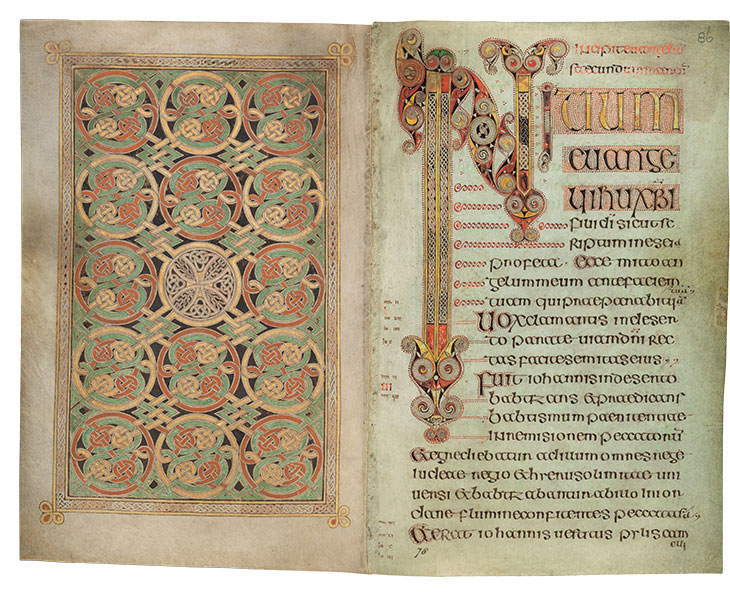 86
incipit euangelium
secundum marcum
INITIUM
EUANGE
LII IHU XPI
filii di sicut sc
riptum in eseia
profeta · ecce mitto an
gelum meum ante faciem
tuam qui praeparabit uiā
tuā
Uox clamantis in deser
to parate uiam dni rec
tas facite semitas eius
Fuit iohannis in deserto
babtizans et praedicans
babtismum paenitentiae
in remisionem peccatorū
Et egrediebatur ad illum omnes
iudeae regio et hierusolimitae uni
uersi et babtizabantur ab illo in ior
dane flumine confitentes peccata sua
Et erat iohannis uestitus pylis cam
elli
78